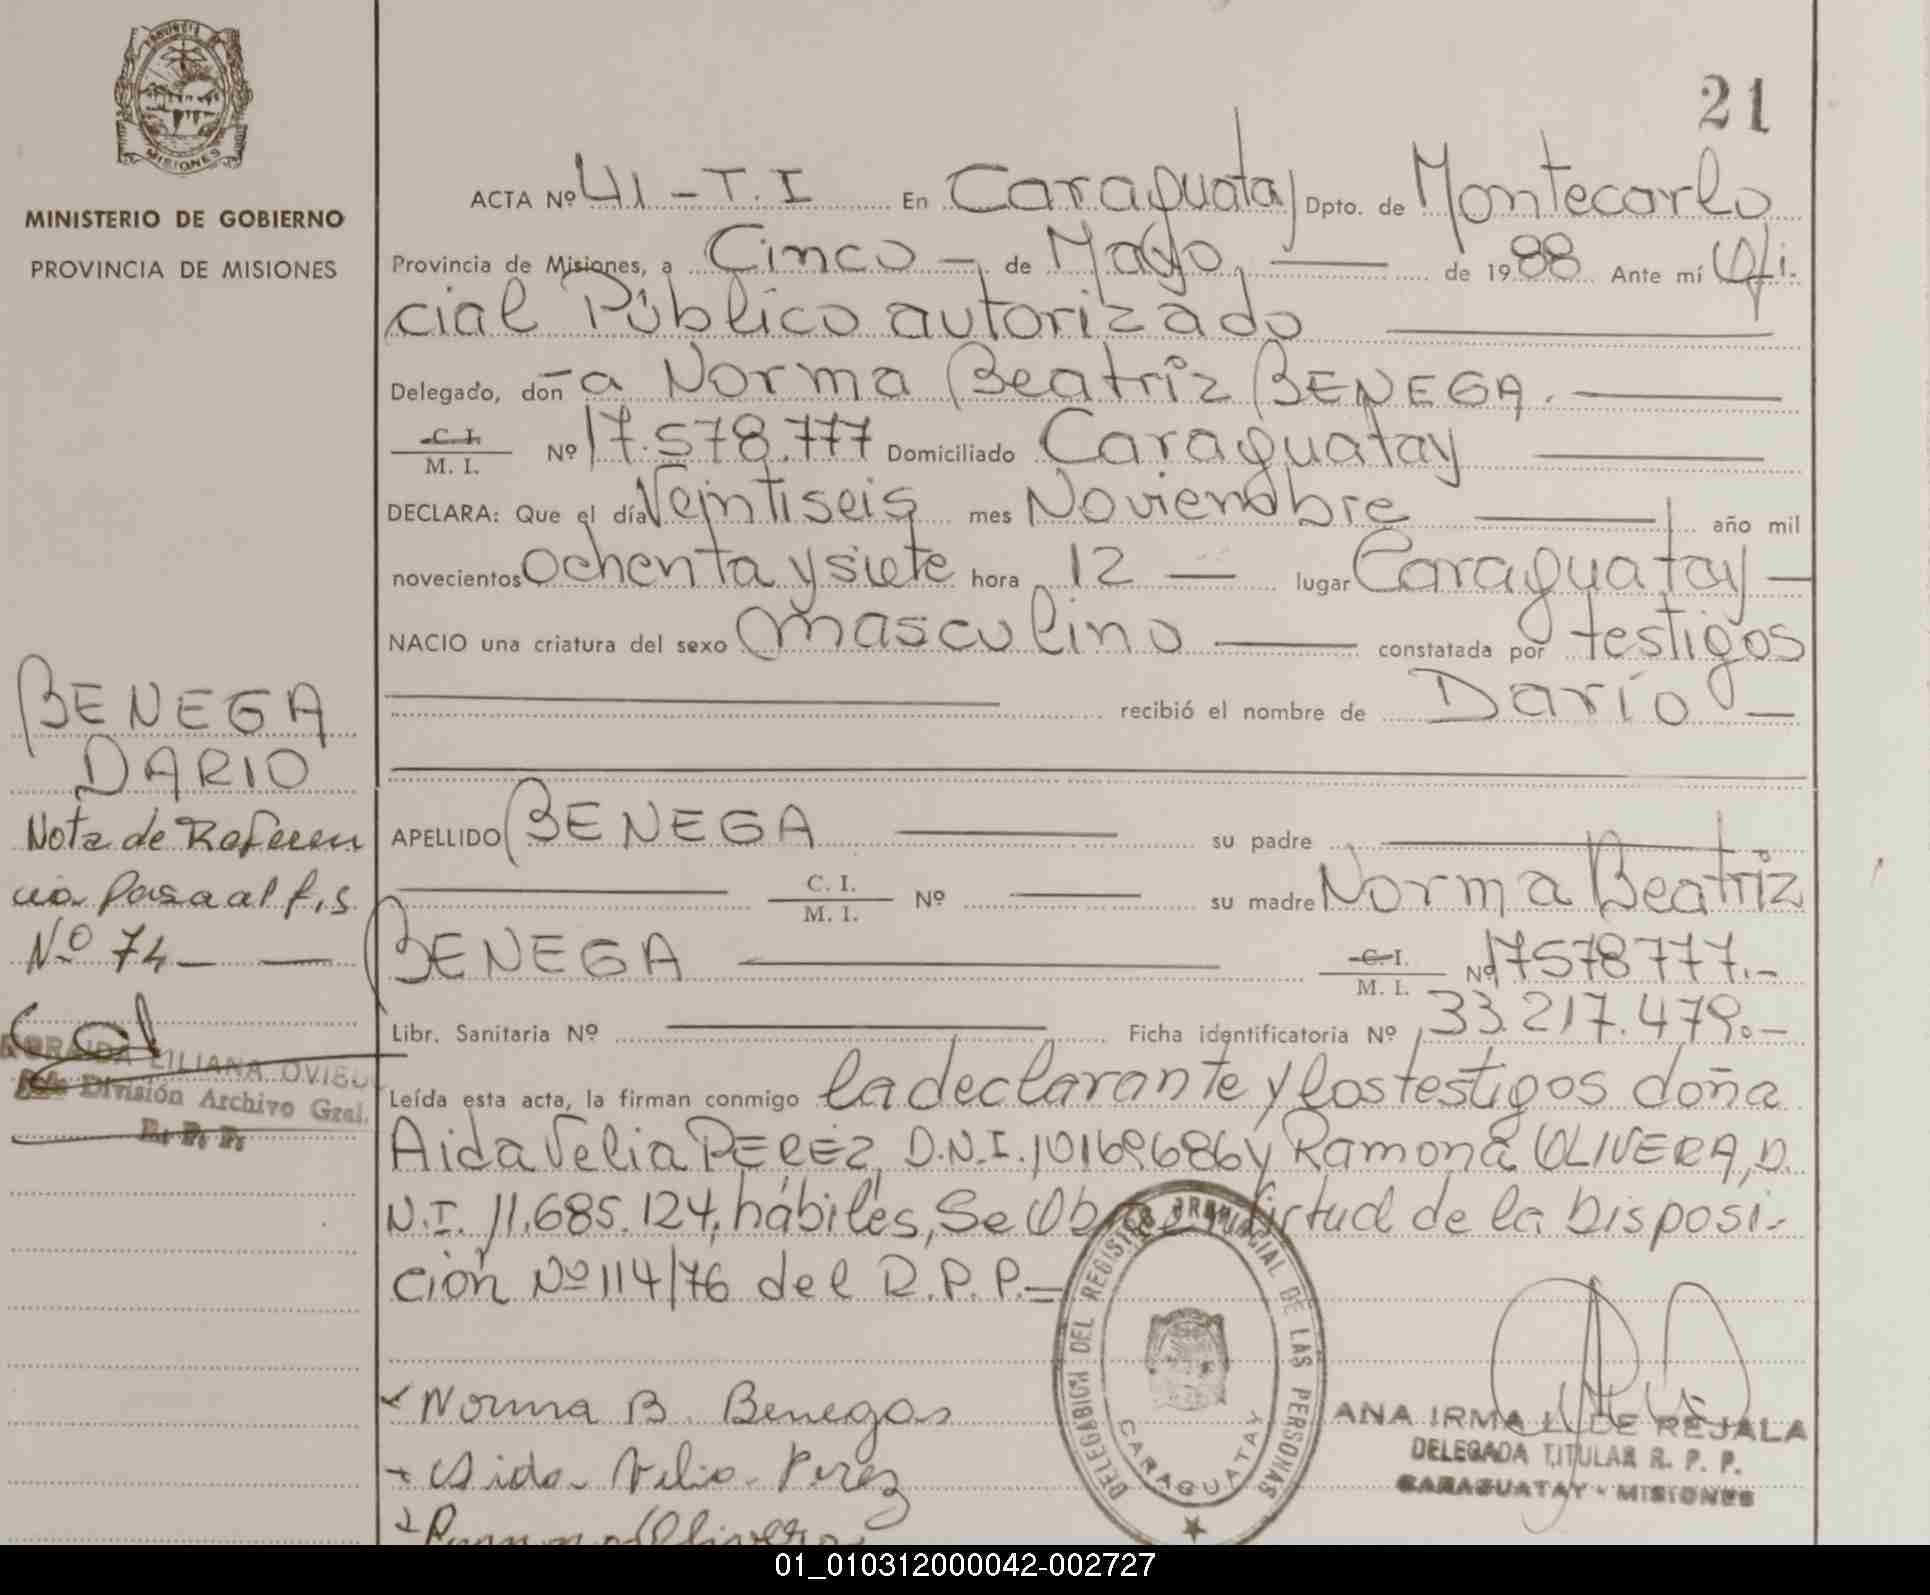 21
MISIONES
MINISTERIO DE GOBIERNO
PROVINCIA DE MISIONES
ACTA Nº 41 - T. I En Caraguatay Dpto. de Montecarlo
Provincia de Misiones, a Cinco - de Mayo, de 1988 Ante mí Ofi-
cial Público autorizado
Delegado, don-a Norma Beatriz BENEGA.
C. I.
M. I. Nº 17.578.777 Domiciliado Caraguatay
DECLARA: Que el día Veintiseis mes Noviembre año mil
novecientos ochenta y siete hora 12 — lugar Caraguatay —
NACIO una criatura del sexo masculino constatada por testigos
recibió el nombre de Darío —
APELLIDO BENEGA su padre
C. I.
M. I. Nº su madre Norma Beatriz
BENEGA C. I.
M. I. Nº 17578777.-
Libr. Sanitaria Nº Ficha identificatoria Nº 33.217.479.-
Leída esta acta, la firman conmigo la declarante y los testigos doña
Aida Velia PEREZ, D.N.I. 10169686 y Ramona OLIVERA, D.
N.I. 11.685.124, hábiles, Se virtud de la Disposi-
ción Nº 114/76 del R.P.P.=
BENEGA
DARIO
Nota de Referen
cia Pasa al f.s
Nº 74 — —
LILIANA OVIEDO
División Archivo Gral.
R. P. P.
Norma B. Benegas
Aida Velia Perez
Ramona Olivera
DELEGACION DEL REGISTRO PROVINCIAL DE LAS PERSONAS
CARAGUATAY
ANA IRMA L. DE REJALA
DELEGADA TITULAR R. P. P.
CARAGUATAY - MISIONES
01_010312000042-002727